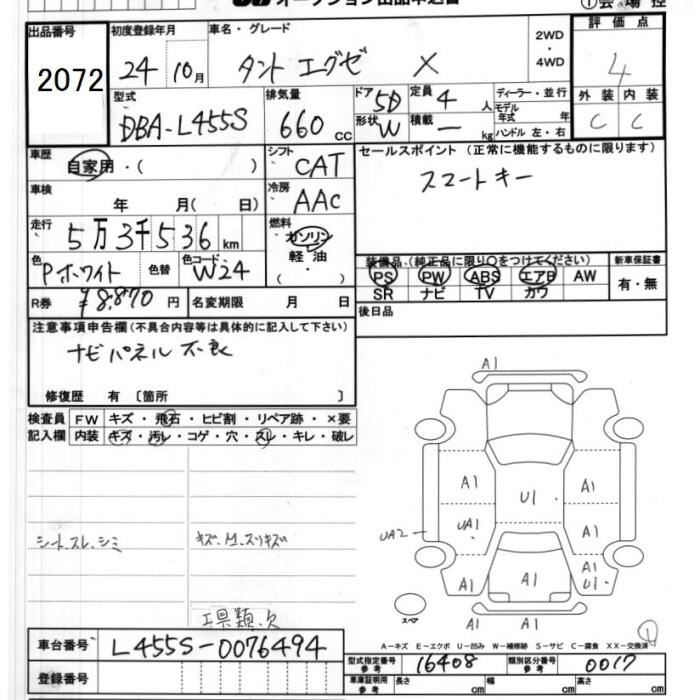 出品番号 初度登録年月 車名・グレード 2WD・4WD 評価点
2072 24年10月 タント エグゼ X 4
型式 排気量 ドア 定員 ディーラー・並行 外装 内装
DBA-L455S 660 cc 5D 4人 モデル年式 年 C C
形状 W 積載 — kg ハンドル 左・右
車歴 自家用・( ) シフト CAT セールスポイント (正常に機能するものに限ります)
車検 年 月( 日) 冷房 AAC スマートキー
走行 5万3千536km 燃料 ガソリン 軽・油 ( )
色 Pホワイト 色替 色コード W24 装備品 (純正品に限り○をつけてください) 新車保証書
PS PW ABS エアB AW 有・無
SR ナビ TV カワ
R券 ¥8,870円 名変期限 月 日 後日品
注意事項申告欄(不具合内容等は具体的に記入して下さい)
ナビパネル不良
修復歴 有 〔箇所 〕
検査員 FW キズ・飛石・ヒビ割・リペア跡・×要
記入欄 内装 キズ・汚レ・コゲ・穴・スレ・キレ・破レ
A1
A1 A1
U1
UA1 A1
UA2
A1 A1 A1
U1
A1
A1
スペア
シート.スレ.シミ
工具類.欠
A-キズ E-エクボ U-凹み W-補修跡 S-サビ C-腐食 XX-交換済
車台番号 L455S-0076494
型式指定番号 参考 16408 類別区分番号 参考 0017
登録番号 車庫証明用 参考 長さ cm 幅 cm 高さ cm